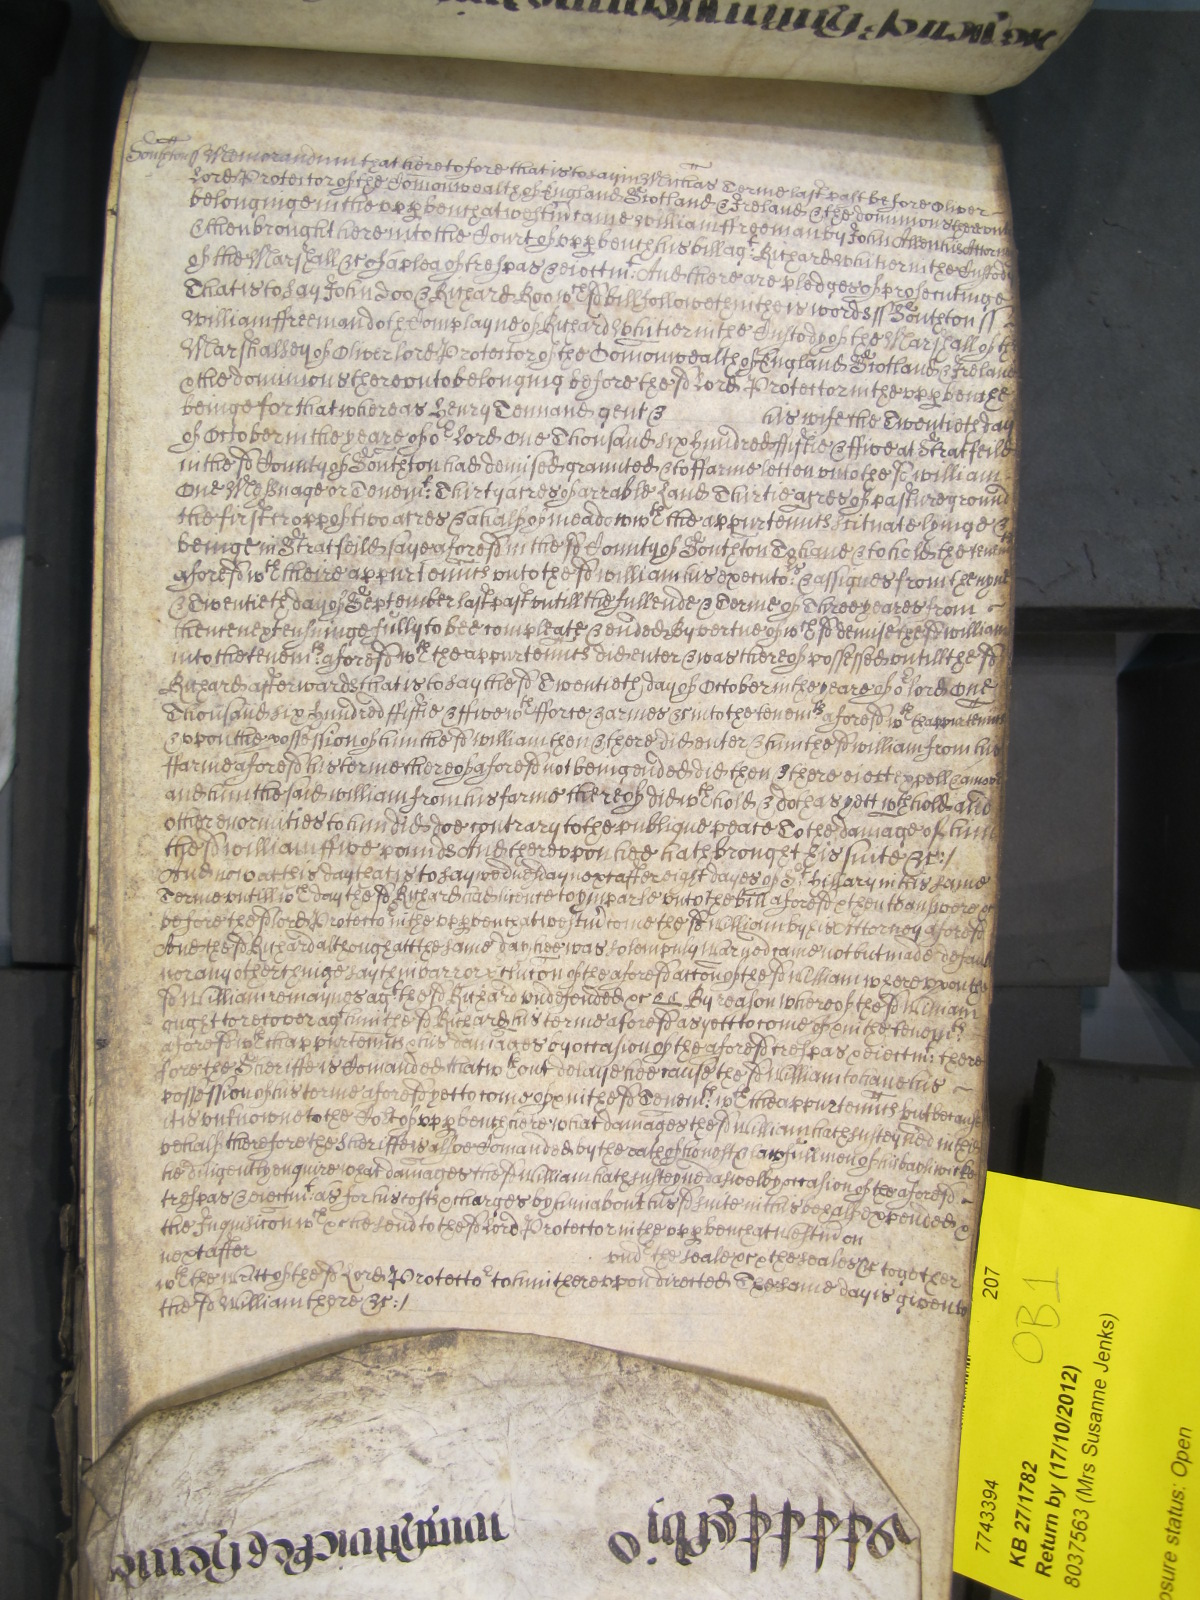 Southton ss Memorandum that heretofore that is to say in Michas Terme last past before Oliver
Lord Protector of the Comonwealth of England Scotland & Ireland & the dominions thereunto
belonginge in the upp bench at westm came William ffreeman by John Attorney
& then brought here into the Court of upp bench his bill agt Richard Whitier in the Custody
of the Marshall &c of a plea of trespas & eiectmt And there are pledges of prosecutinge
That is to say John Doo & Richard Roo wch sd bill followeth in theis words ss Southton ss
William ffreeman doth Complayne of Richard Whitier in the Custody of the Marshall of the
Marshallsey of Oliver lord Protector of the Comonwealth of England Scotland & Ireland
& the dominions thereunto belonging before the sd Lord Protector in the upp bench
beinge for that whereas Henry Tennand gent & his wife the Twentieth day
of October in the yeare of or Lord One Thousand six hundred fiftie & ffive at Stratfeild
in the sd County of Southton had demised graunted & to ffarme letten unto the sd William
One Messuage or Tenemt: Thirty acres of arrable Land Thirtie acres of pasture ground
the first cropp of two acres & a half of meadow wth the appurtennts scituate lyinge &
beinge in Stratfeild Saye aforesd in the sd County of Southton To have & to hold the tenemts
aforesd wth theire appurtennts unto the sd William his executors & assignes from the nyne
& Twentieth day of September last past untill the full ende & Terme of Three yeares from
thence next ensuinge fully to bee compleate & ended By vertue of wch sd demise the sd William
into the tenemts aforesd wth the appurtennts did enter & was thereof possessed untill the sd
Richard afterwards that is to say the sd Twentieth day of October in the yeare of or lord One
Thousand six hundred fiftie & ffive wth fforce & armes &c into the tenemts aforesd wth thappurtennts
& upon the possession of him the sd William then & there did enter & him the sd William from his
ffarme aforesd his terme thereof aforesd not being ended did then & there eiect expell & amove
and him the said William from his farme thereof did wthhold & doth as yett wthhold and
other enormities to him did doe contrary to the publique peace To the damage of him
the sd William ffive pounds And thereupon hee hath brought his suite &c:/
And now at this day that is to say wednesday next after eight dayes of St hillary in this same
Terme untill wch day the sd Richard had licence to imparle unto the bill aforesd & then to answere &c
before the sd lord Protector in the upp bench at westm come the sd William by his Attorney aforesd
And the sd Richard although att the same day hee was solempnly warned came not but made default
nor any other thinge sayth in barr or of the aforesd accon of the sd William whereupon the
sd William remaynes agt the sd Richard undefended &c By reason whereof the sd William
ought to recover agt him the sd Richard his terme aforesd as yett to come of & in the tenemts
aforesd wth thappurtennts & his damages by occasion of the aforesd trespas & eiectmt: there
fore the Sheriffe is Comanded that wthout delaye hee cause the sd William to have his
possession of his terme aforesd yet to come of & in the sd Tenemts: wth the appurtennts but because
it is unknowne to the Cort of upp bench here what damages the sd William hath susteyned in this
behalf therefore the Sheriffe is alsoe Comanded by the oath of honest & lawfull men of his baylywicke
he diligently enquire what damages the sd William hath susteyned as well by occasion of the aforesd
trespas & eiectmt: as for his costs & charges by him about his sd suite in this behalf expended &
the Inquisicon wch &c he send to the sd Lord Protector in the upp bench at westm on
next after undr the seale &c & the seales &c together
wth the writt of the sd Lord Protector to him thereupon directed The same day is given to
the sd William there &c:/
207
OB1
7743394
KB 27/1782
Return by (17/10/2012)
8037563 (Mrs Susanne Jenks)
osure status: Open